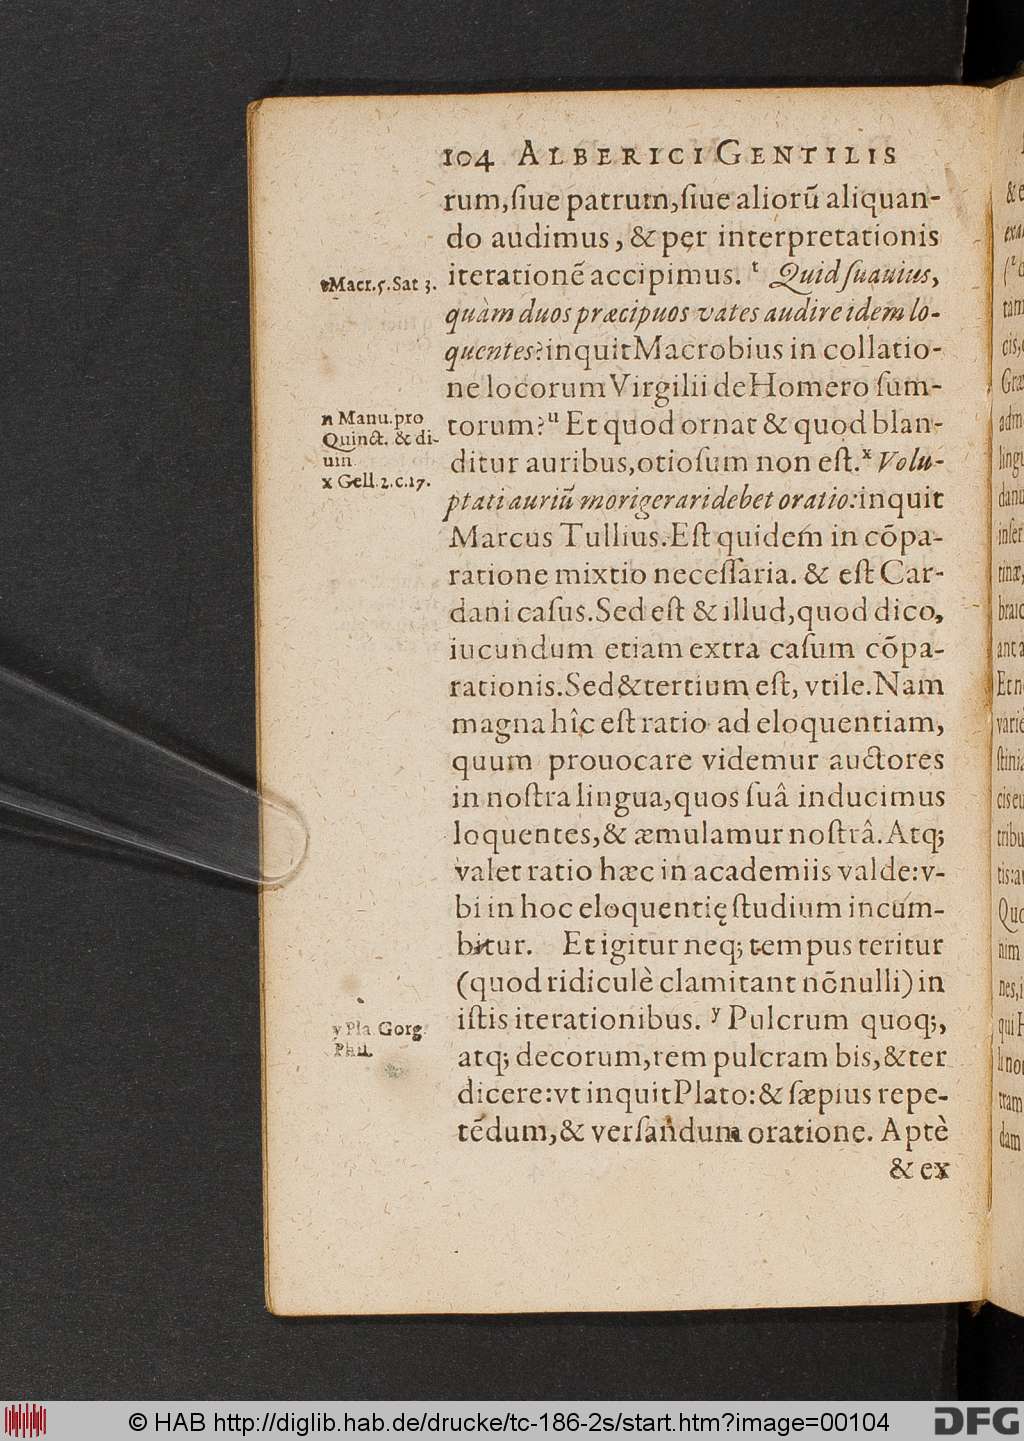 104 ALBERICI GENTILIS
rum, ſiue patrum, ſiue aliorũ aliquan-
do audimus, & per interpretationis
iterationẽ accipimus. t Quid ſuauius,
quàm duos præcipuos vates audire idem lo-
quentes? inquit Macrobius in collatio-
ne locorum Virgilii de Homero ſum-
torum? u Et quod ornat & quod blan-
ditur auribus, otioſum non eſt. x Volu-
ptati auriũ morigerari debet oratio: inquit
Marcus Tullius. Eſt quidem in cõpa-
ratione mixtio neceſſaria. & eſt Car-
dani caſus. Sed eſt & illud, quod dico,
iucundum etiam extra caſum cõpa-
rationis. Sed & tertium eſt, vtile. Nam
magna hîc eſt ratio ad eloquentiam,
quum prouocare videmur auctores
in noſtra lingua, quos ſuâ inducimus
loquentes, & æmulamur noſtrâ. Atq;
valet ratio hæc in academiis valde: v-
bi in hoc eloquentię ſtudium incum-
bitur. Et igitur neq; tempus teritur
(quod ridiculè clamitant nõnulli) in
iſtis iterationibus. y Pulcrum quoq;,
atq; decorum, rem pulcram bis, & ter
dicere: vt inquit Plato: & ſæpius repe-
tẽdum, & verſandum oratione. Aptè
& ex
t Macr. 5. Sat 3.
n Manu. pro
Quinct. & di-
uin
x Gell. 2. c. 17.
y Pla. Gorg.
Phil.
& e
tam
cis,
Græ
adm
lingu
danu
inſer
rinæ,
braic
ant a
Et n
varie
ſtini
cis eu
tribu
tis: a
Quo
nim
nes, i
qui H
li no
tram
dam
© HAB http://diglib.hab.de/drucke/tc-186-2s/start.htm?image=00104
DFG